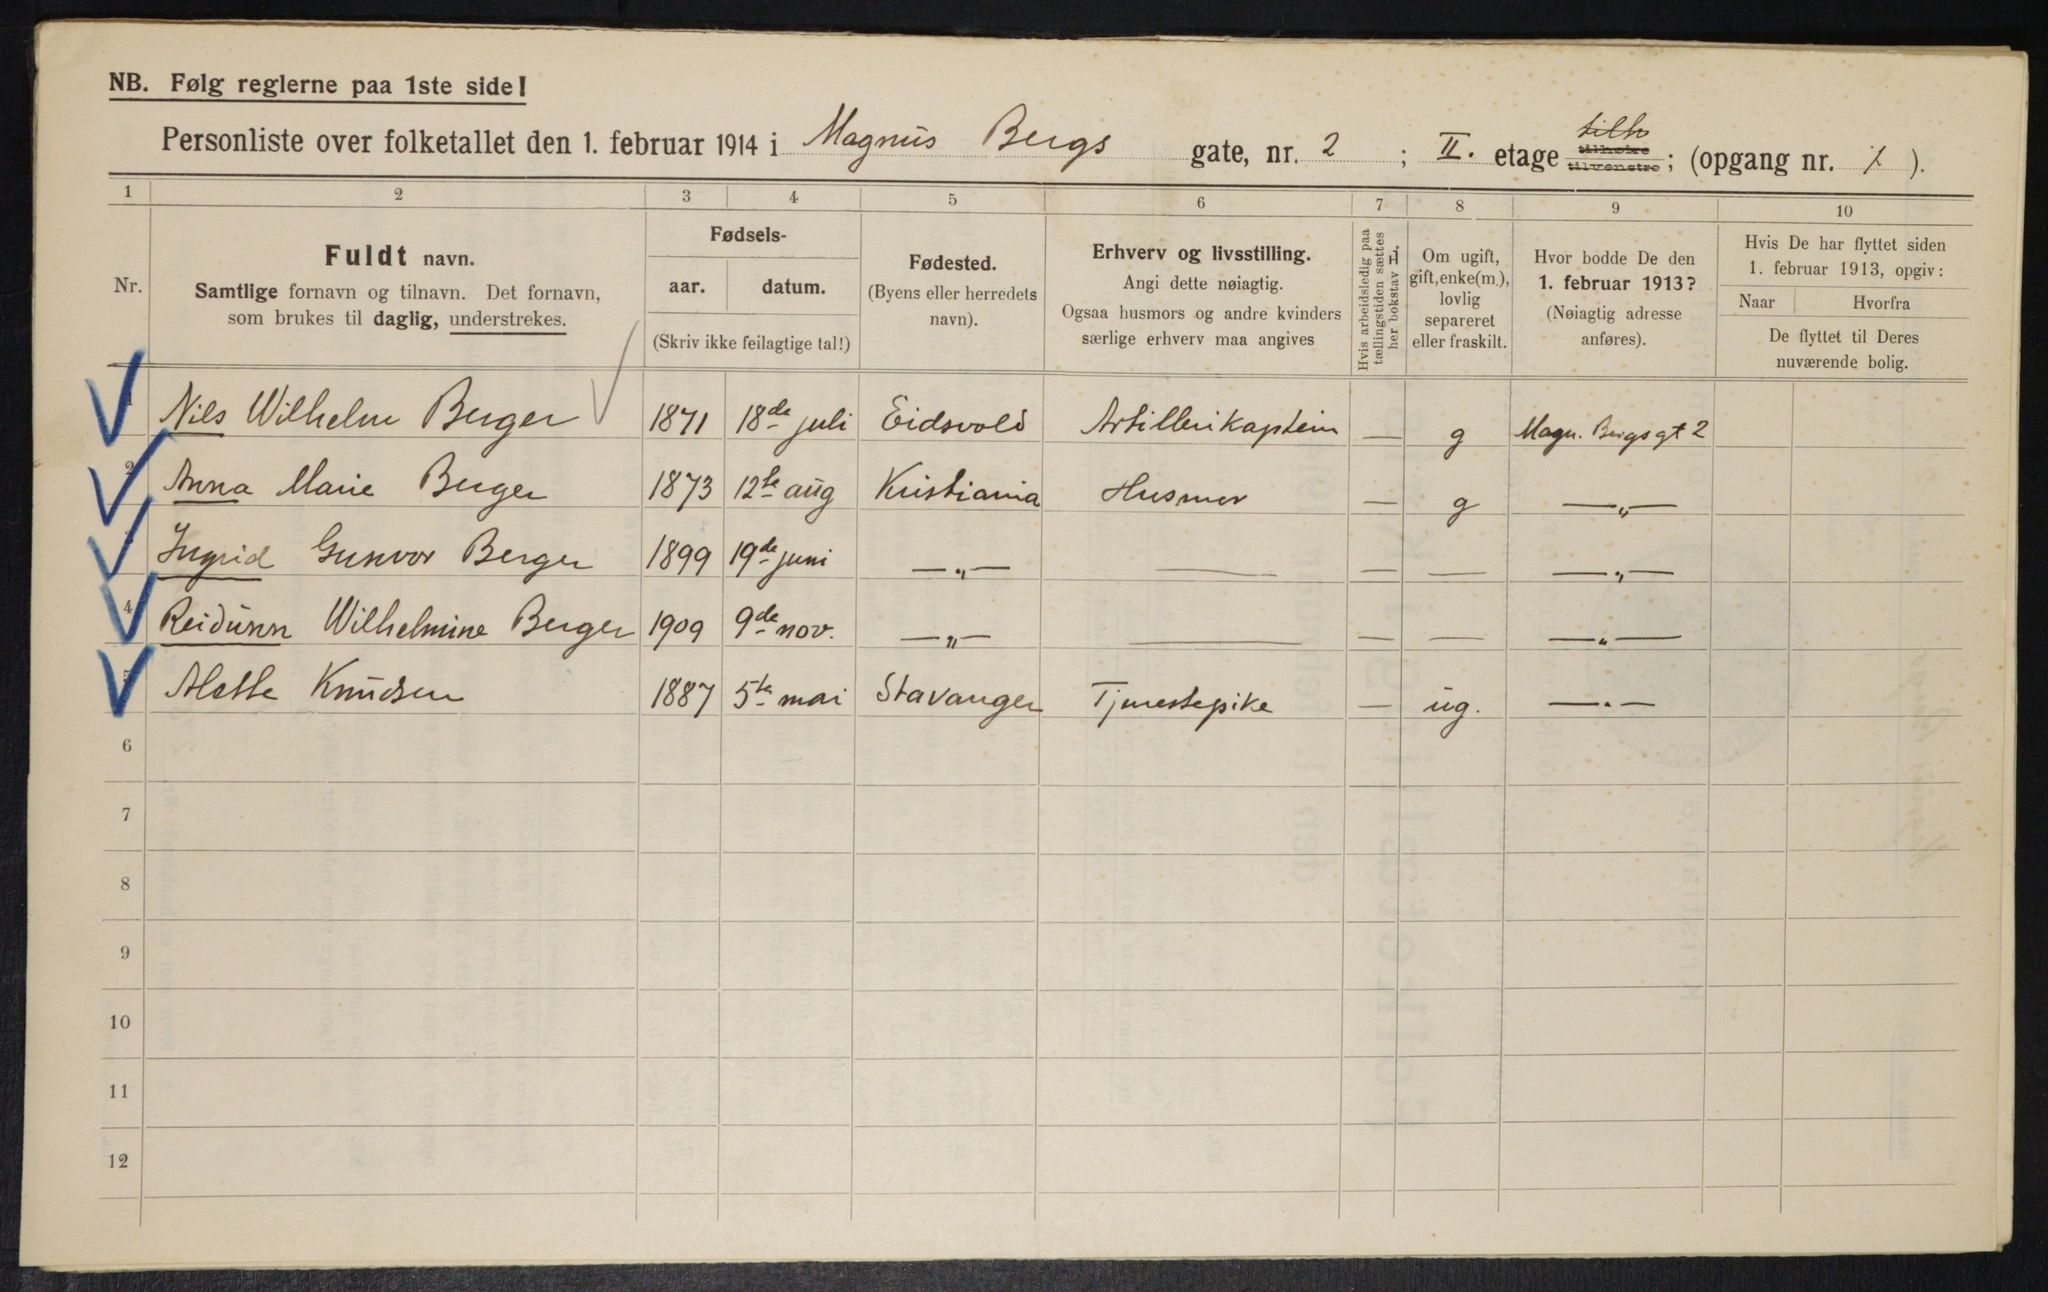 NB. Følg reglerne paa 1ste side!
Personliste over folketallet den 1. februar 1914 i Magnus Bergs gate, nr. 2 ; II. etage tilh tilhøire tilvenstre; (opgang nr. 1 ).
1 2 3 4 5 6 7 8 9 10
Nr.
Fuldt navn.
Samtlige fornavn og tilnavn. Det fornavn,
som brukes til daglig, understrekes.
Fødsels-
aar. datum.
(Skriv ikke feilagtige tal!)
Fødested.
(Byens eller herredets
navn).
Erhverv og livsstilling.
Angi dette nøiagtig.
Ogsaa husmors og andre kvinders
særlige erhverv maa angives
Hvis arbeidsledig paa
tællingstiden sættes
her bokstav L,
Om ugift,
gift, enke(m.),
lovlig
separeret
eller fraskilt.
Hvor bodde De den
1. februar 1913?
(Nøiagtig adresse
anføres).
Hvis De har flyttet siden
1. februar 1913, opgiv:
Naar Hvorfra
De flyttet til Deres
nuværende bolig.
1 Nils Wilhelm Berger 1871 18de juli Eidsvold Artillerikaptein — g Magn. Bergs gt 2
2 Anna Marie Berger 1873 12te aug Kristiania Husmor — g —"—
3 Ingrid Gunvor Berger 1899 19de juni —"— — — — —"—
4 Reidunn Wilhelmine Berger 1909 9de nov. —"— — — — —"—
5 Alette Knudsen 1887 5te mai Stavanger Tjenestepike — ug. —"—
6
7
8
9
10
11
12